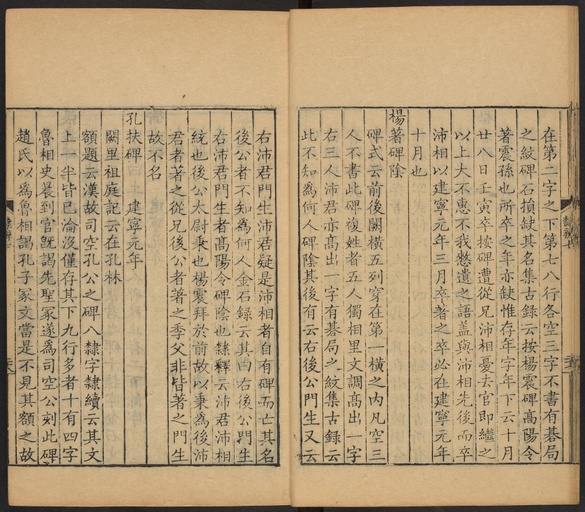 在第二字之下第七八行各空三字不書有碁局
之紋碑石損缺其名集古錄云按楊震碑高陽令
著震孫也所卒之年亦缺惟存年字年下云十月
廿八日壬寅卒按碑遭從兄沛相憂去官即繼之
以上天不惠不我憗遺之語蓋與沛相先後而卒
沛相以建寧元年三月卒著之卒必在建寧元年
十月也
楊著碑陰
碑式云前後闕橫五列穿在第一橫之內凡空三
人不書此碑複姓者五人獨相里文調高出一字
右三人沛君亦髙出一字有碁局之紋集古錄云
此不知為何人碑陰其後有云右後公門生又云
右沛君門生沛君疑是沛相者自有碑而亡其名
後公者不知為何人金石錄云其曰右後公門生
右沛君門生者髙陽令碑陰也隸釋云沛君沛相
統也後公太尉秉也楊震拜於前故以秉為後沛
君者著之從兄後公者著之季父非皆著之門生
故不名
孔扶碑 建寧元年
闕里祖庭記云在孔林
額題云漢故司空孔公之碑八隸字隸續云其文
上一半皆已淪沒僅存其下九行多者十有四字
魯相史晨到官旣謁先聖冢遂為司空公刻此碑
趙氏以為魯相謁孔子冢文當是不見其額之故